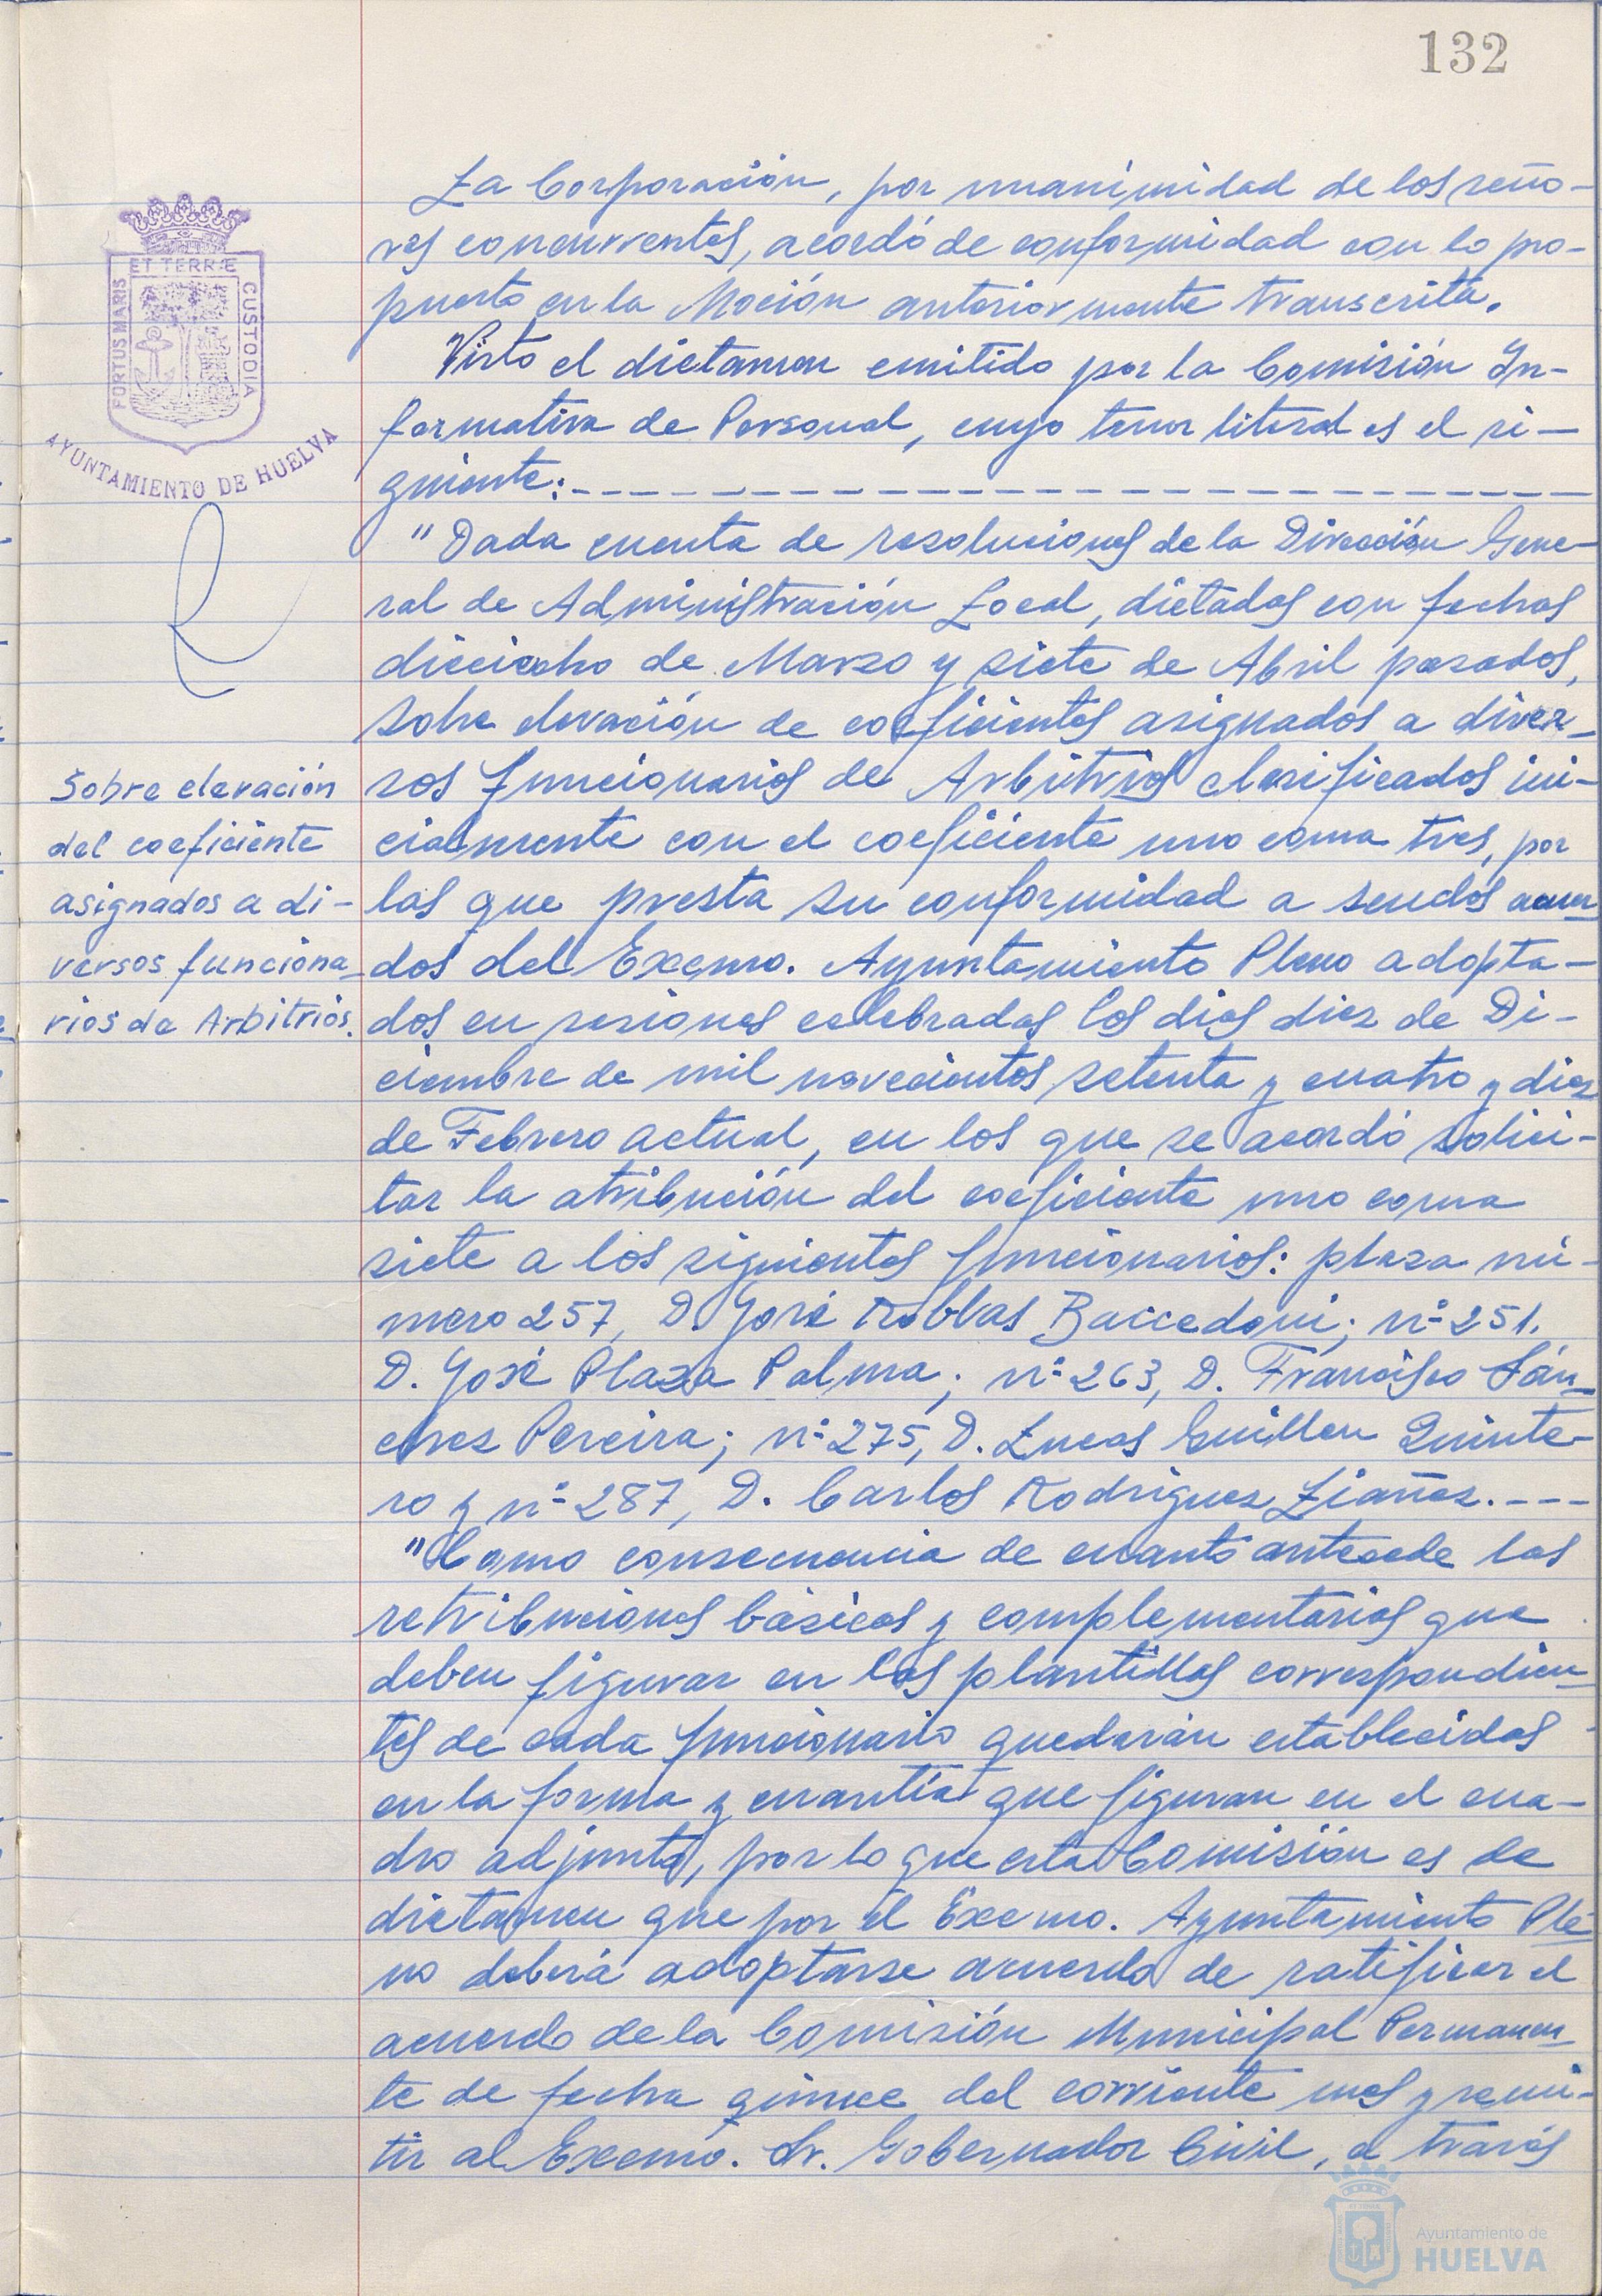 132
La Corporación, por unanimidad de los seño-
res concurrentes, acordó de conformidad con lo pro-
puesto en la Moción anteriormente transcrita.
Visto el dictamen emitido por la Comisión In-
formativa de Personal, cuyo tenor literal es el si-
guiente:
"Dada cuenta de resoluciones de la Dirección Gene-
ral de Administración Local, dictadas con fechas
dieciocho de Marzo y siete de Abril pasados,
sobre elevación de coeficientes asignados a diver-
sos funcionarios de Arbitrios clasificados ini-
cialmente con el coeficiente uno coma tres, por
las que presta su conformidad a sendos acuer-
dos del Excmo. Ayuntamiento Pleno adopta-
dos en sesiones celebradas los dias diez de Di-
ciembre de mil novecientos setenta y cuatro y diez
de Febrero actual, en los que se acordó solici-
tar la atribución del coeficiente uno coma
siete a los siguientes funcionarios: plaza nú-
mero 257, D. José Robles Baccedoni; nº 251.
D. José Plaza Palma; nº 263, D. Francisco Sán-
chez Pereira; nº 275, D. Lucas Guillen Quinte-
ro y nº 287, D. Carlos Rodriguez Liañez. ---
"Como consecuencia de cuanto antecede las
retribuciones básicas y complementarias que
deben figurar en las plantillas correspondien-
tes de cada funcionario quedarán establecidas
en la forma y cuantía que figuran en el cua-
dro adjunto, por lo que esta Comisión es de
dictamen que por el Excmo. Ayuntamiento Ple-
no deberá adoptarse acuerdo de ratificar el
acuerdo de la Comisión Municipal Permanen-
te de fecha quince del corriente mes y remi-
tir al Excmo. Sr. Gobernador Civil, a través
ET TERRÆ
PORTUS MARIS
CUSTODIA
AYUNTAMIENTO DE HUELVA
Sobre elevación
del coeficiente
asignados a di-
versos funciona-
rios de Arbitrios.
Ayuntamiento de
HUELVA